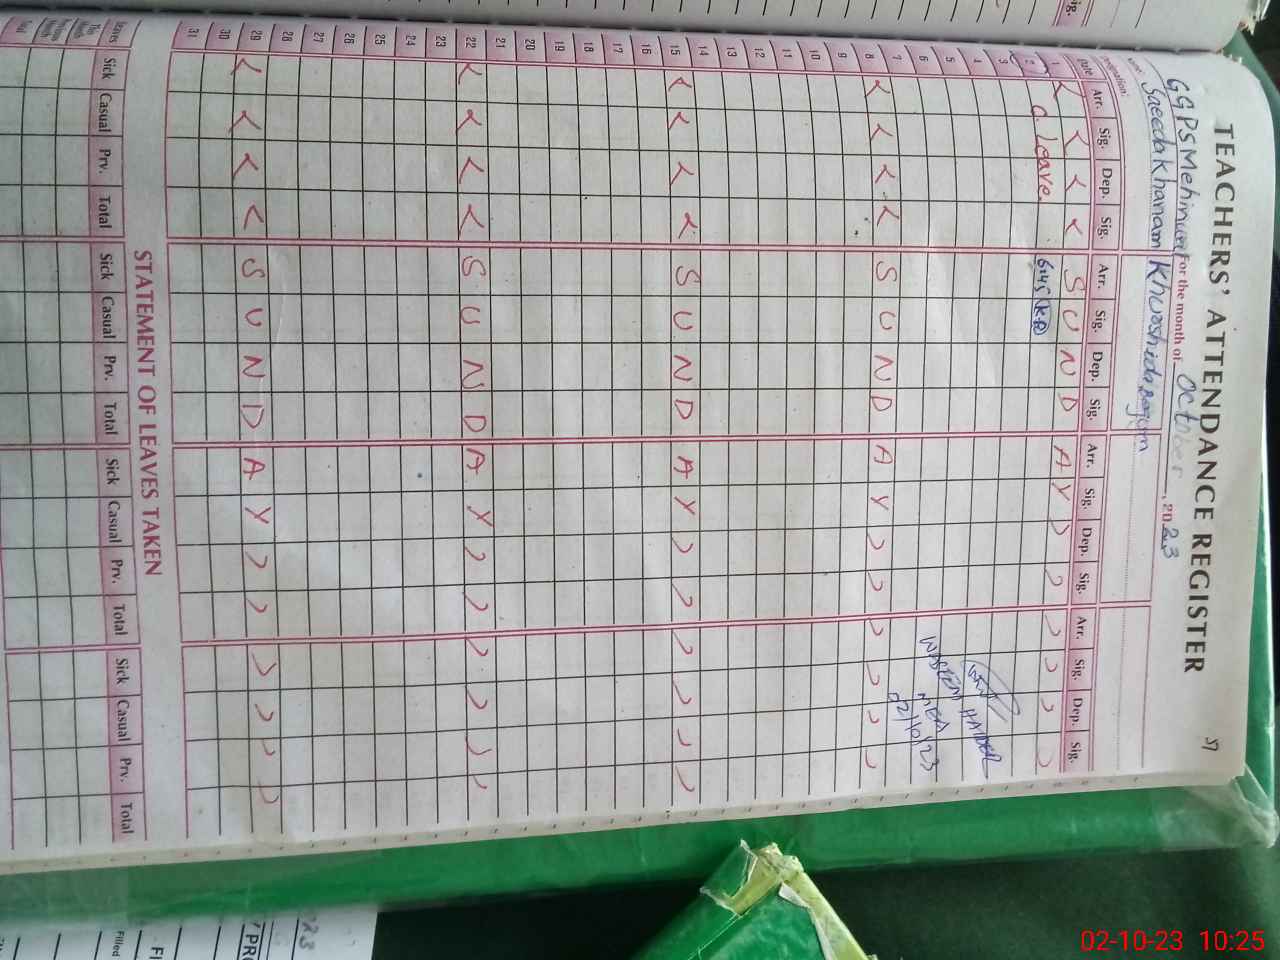 TEACHERS' ATTENDANCE REGISTER 57
GGPS for the month of October, 2023
Name: Saeeda Khanam Khursheda Begum
Designation:
Date Arr. Sig. Dep. Sig. Arr. Sig. Dep. Sig. Arr. Sig. Dep. Sig. Arr. Sig. Dep. Sig.
1 S U N D A Y
2 C. Leave. 6:45 K.B
3
4
5
6
7
8 S U N D A Y
9
10
11
12
13
14
15 S U N D A Y
16
17
18
19
20
21
22 S U N D A Y
23
24
25
26
27
28
29 S U N D A Y
30
31
WASEEM HAIDER
MEA
02/10/23
STATEMENT OF LEAVES TAKEN
Leaves Sick Casual Prv. Total Sick Casual Prv. Total Sick Casual Prv. Total Sick Casual Prv. Total
This Month
Total
Sig.
23
Filled
02-10-23 10:25